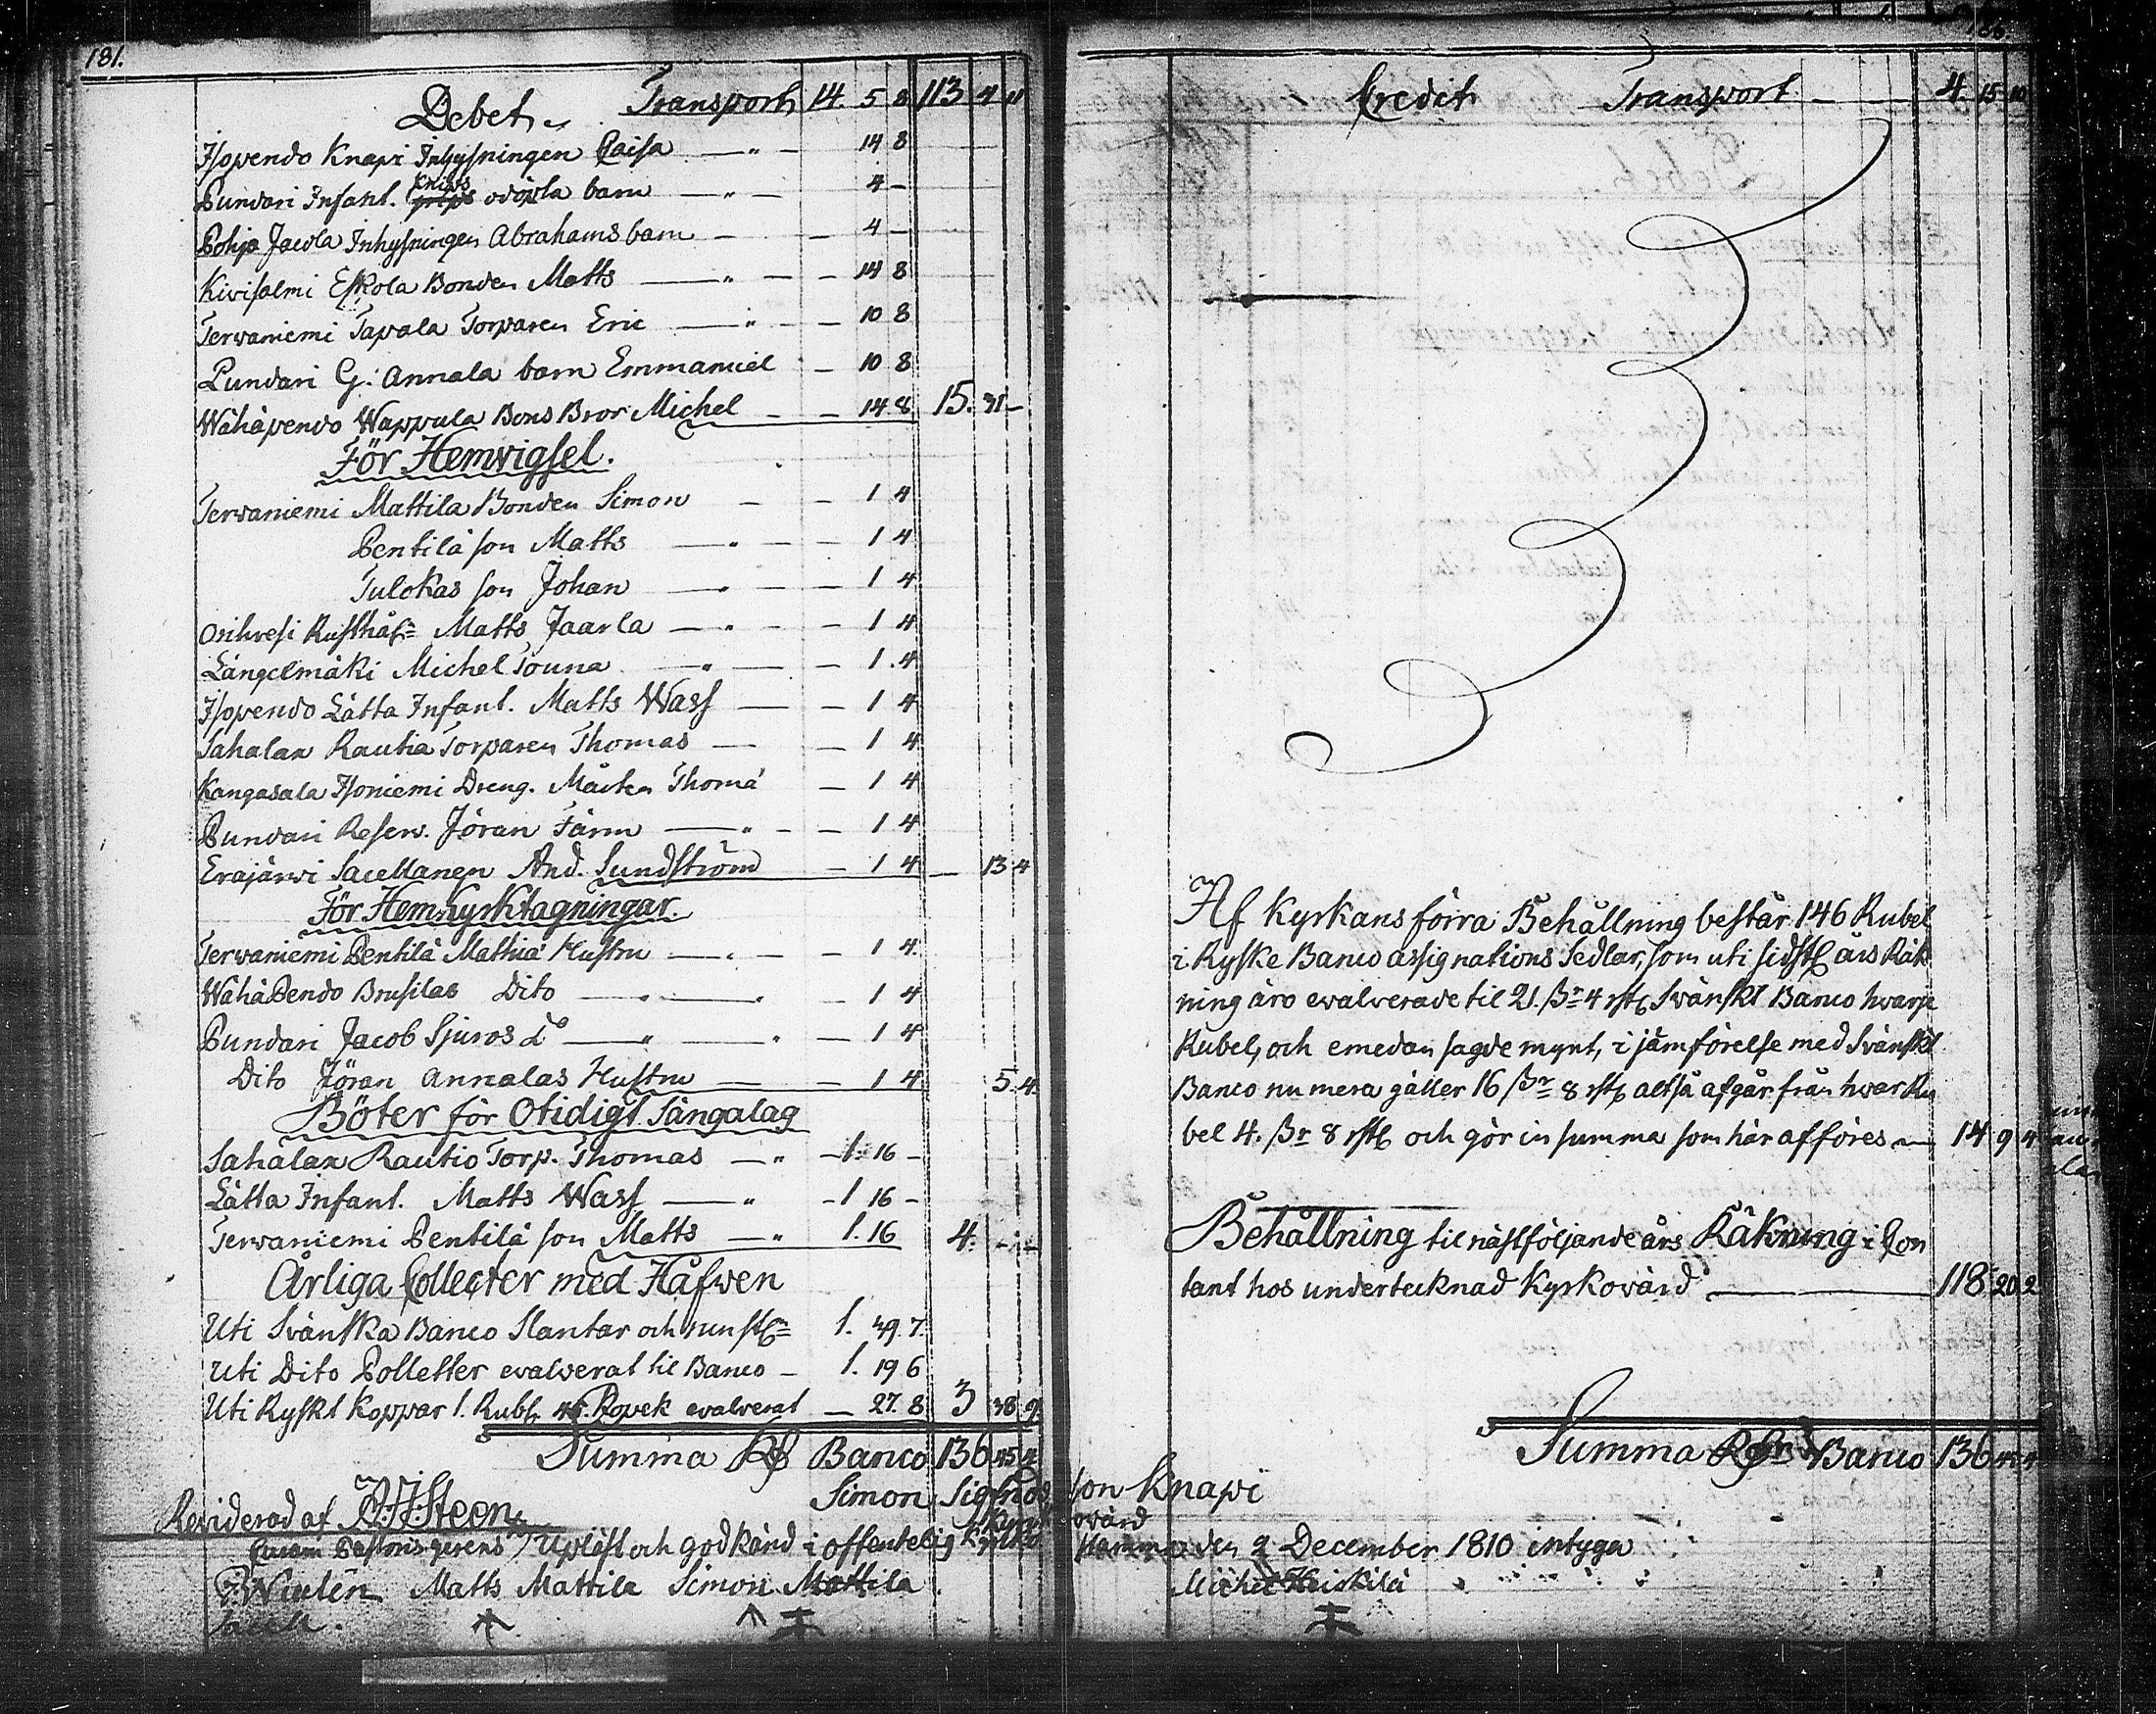 181.
Debet. Transport 14. 5 8 113 4 11
Isopendo Knapi Inhysningen Caisa — " — 14 8
Pundari Infant. Cnips odöpta barn — " — 4 —
Pohja Jacola Inhysningen Abrahams barn — — 4 —
Kivisalmi Eskola Bonden Matts — " — 14 8
Tervaniemi Tapala Torparen Eric — " — 10 8
Pundari G: Annala barn Emmanuel — 10 8
Wähäpendo Wappula Bons Bror Michel — — 14 8 15. 31 —
För Hemvigsel.
Tervaniemi Mattila Bonden Simon — — 1 4
Pentilä son Matts — " — 1 4
Tulokas son Johan — " — 1 4
Orihvesi Rusthåls Matts Jaarla — " — 1 4
Längelmäki Michel Touna — " — 1. 4
Isopendo Lätta Infant. Matts Wass — — 1 4
Sahalax Rautia Torparen Thomas — — 1 4
Kangasala Isoniemi Dreng. Mårten Thomä — 1 4
Pundari Reserv. Jöran Färm — " — 1 4
Erajärwi Sacellanen And. Sundström — 1 4 — 13 4
För Hemkyrktagningar.
Tervaniemi Pentilä Mathiä Hustru — " — 1 4.
WähäPendo Brusilas Dito — " — " — 1 4
Pundari Jacob Sjuros Do — " — " — 1 4
Dito Jöran Annalas Hustru — — 1 4 5. 4.
Böter för Otidigt Sängalag
Sahalax Rautio Torp. Thomas — " — 1. 16 —
Lätta Infant. Matts Wass — " — 1 16 —
Tervaniemi Pentilä son Matts — " 1. 16 4. — —
Årliga Collecter med Håfwen
Uti Svänska Banco Slantar och runst: 1. 39. 7.
Uti Dito Polletter evalverat til Banco — 1. 19 6
Uti Ryskt Koppar 1. Rubl. 45. Kopek evalverat — 27. 8 3 38 9
Summa Rd Banco 136 45 4
Simon Sigfrids son Knapi
Kyrkovärd
Reviderad af J. Steen
Quam Pastoris gerens Upläst och godkänd i offentelig Kyrko stamma den 2 December 1810 intyga
Matts Mattila Simon Mattila Michel Heiskilä
Sacell.
Credit Transport — — 4. 15 10
Af Kyrkans förra Behållning består 146 Rubel
i Ryske Banco assignations Sedlar, som uti sidstl. års Räk
ning äro evalverade til 21. ßr 4 rst. Svänskt Banco hvarje
Rubel, och emedan sagde mynt, i jämförelse med Svänskt
Banco nu mera gäller 16 ßr 8 rst. altså afgår från hwar Ru
bel 4. ßr 8 rst. och gör in summa som här afföres — 14 9 4
Behållning til nästföljande års Räkning i Con
tant hos undertecknad Kyrkovärd — 118 20 2
Summa Rd Banco 136 45 4